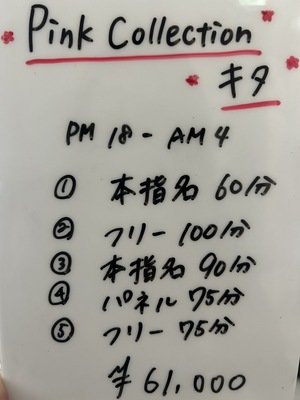 Pink Collection
キタ
PM 18 - AM 4
① 本指名 60分
② フリー 100分
③ 本指名 90分
④ パネル 75分
⑤ フリー 75分
¥ 61,000